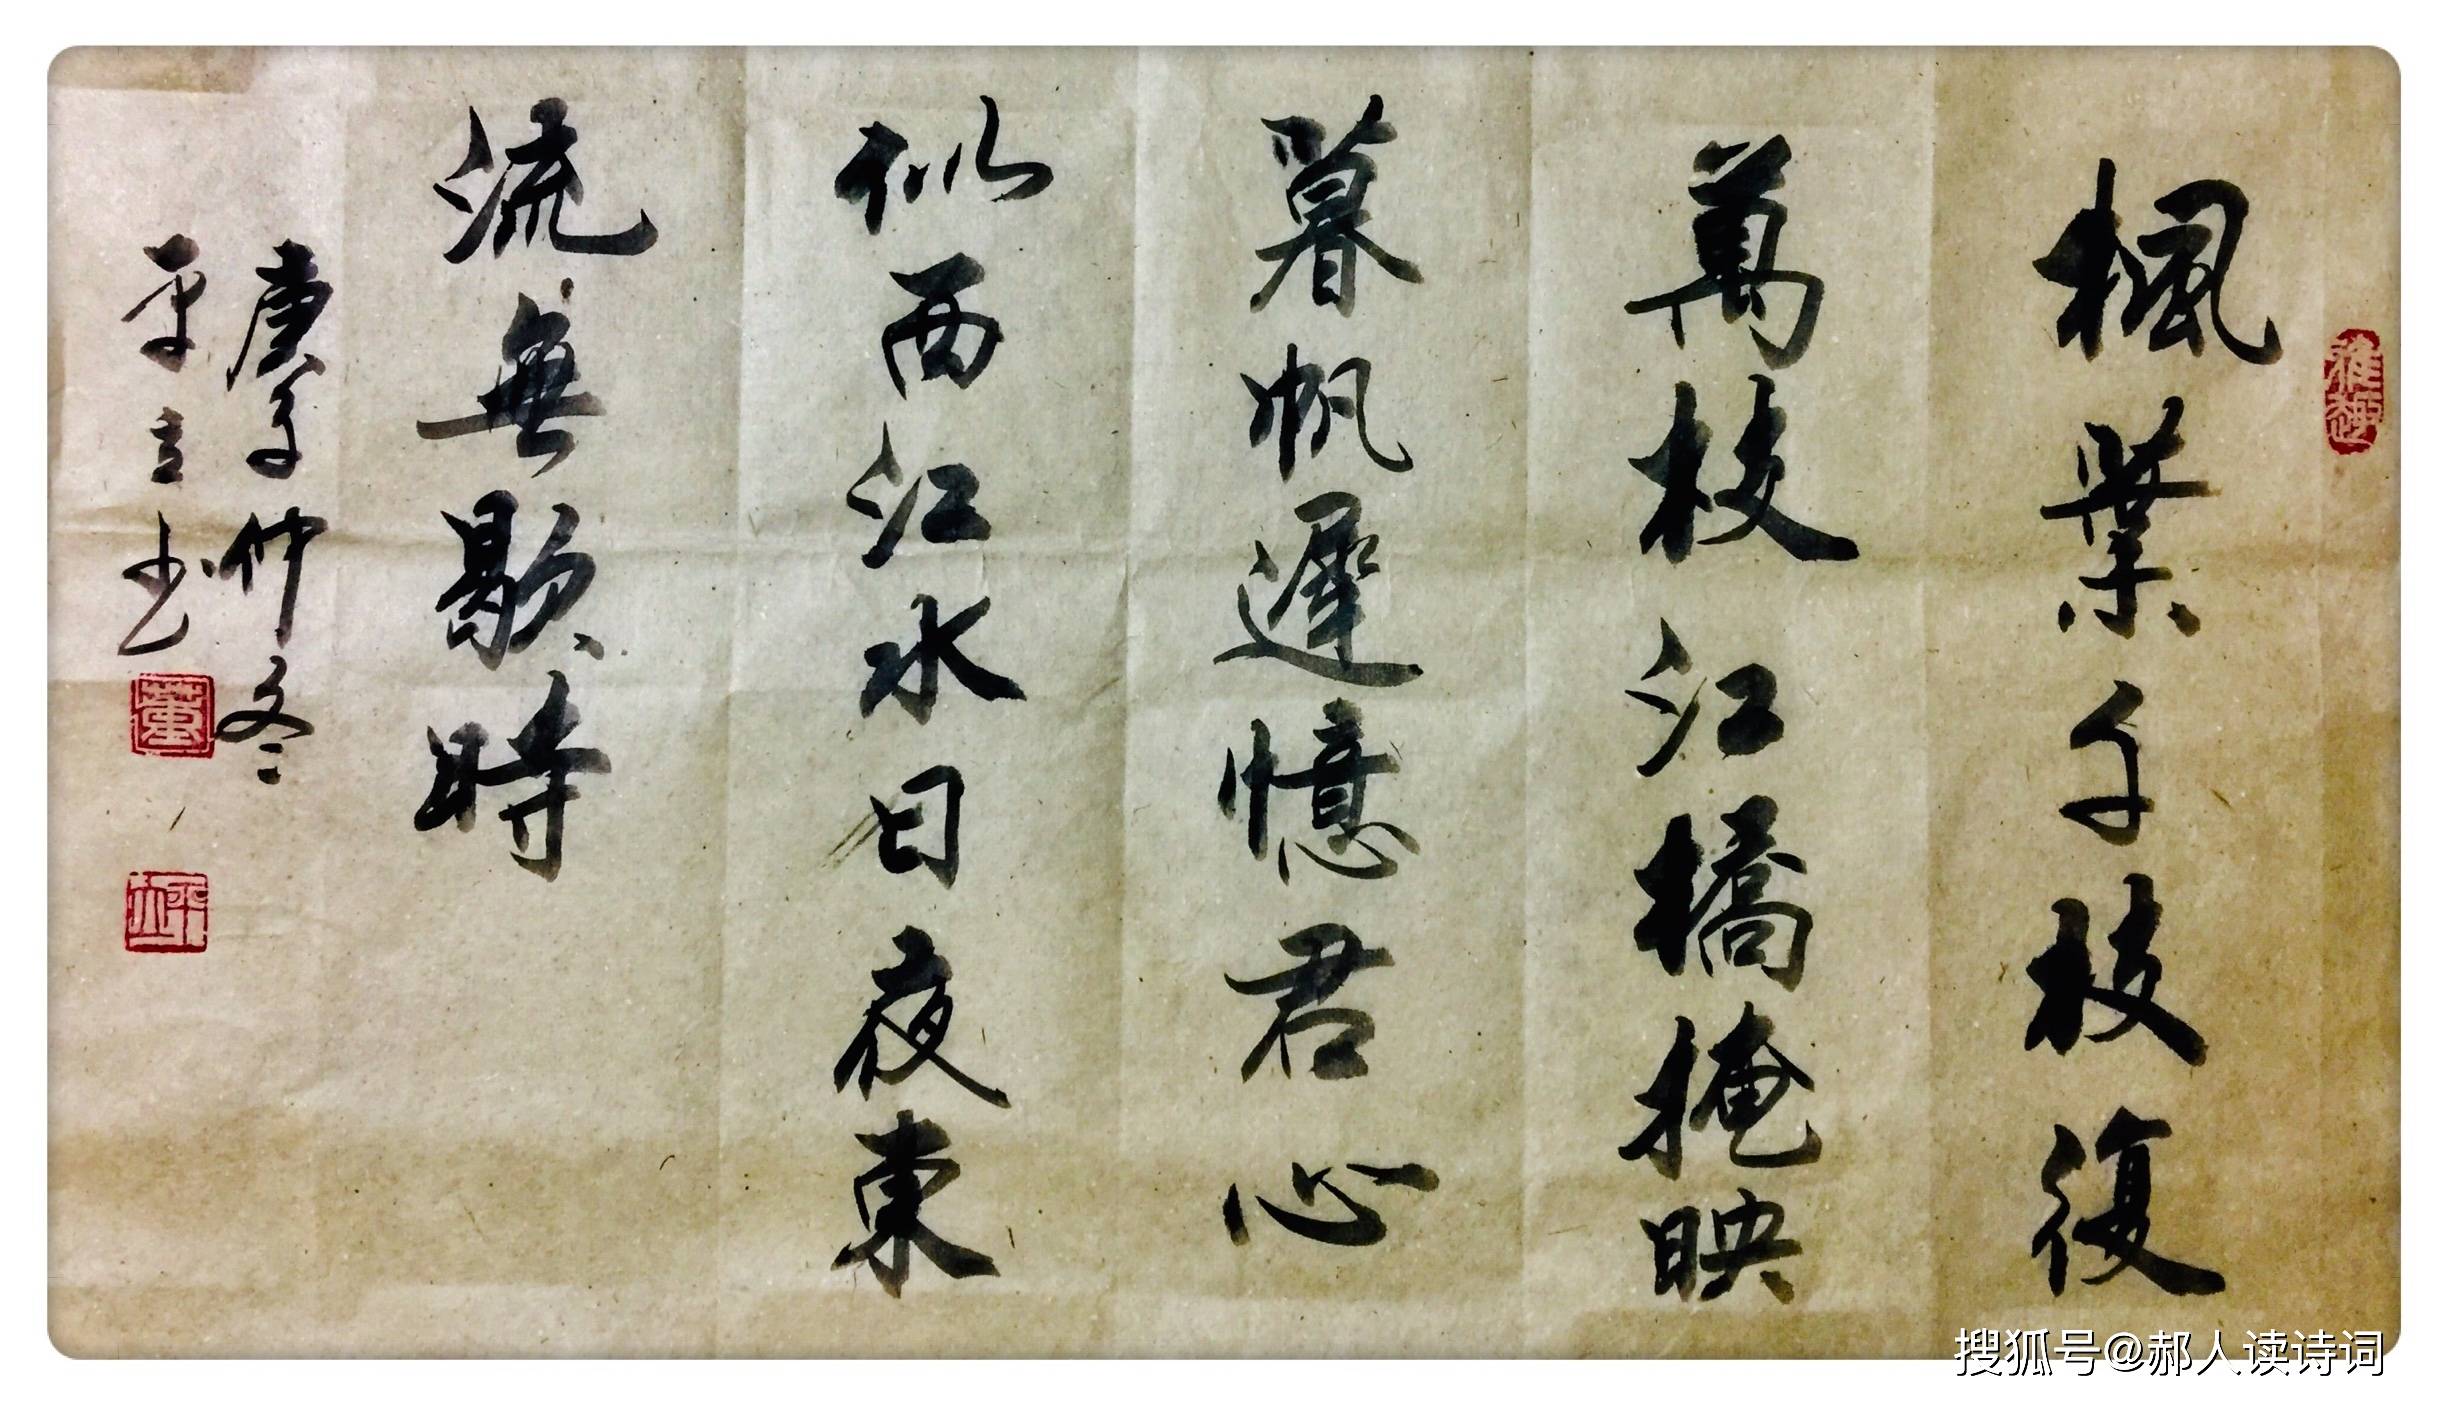 楓葉千枝復
萬枝江橋掩映
暮帆遲憶君心
似西江水日夜東
流無歇時
庚子仲冬
平立书
雅趣
董
搜狐号@郝人读诗词